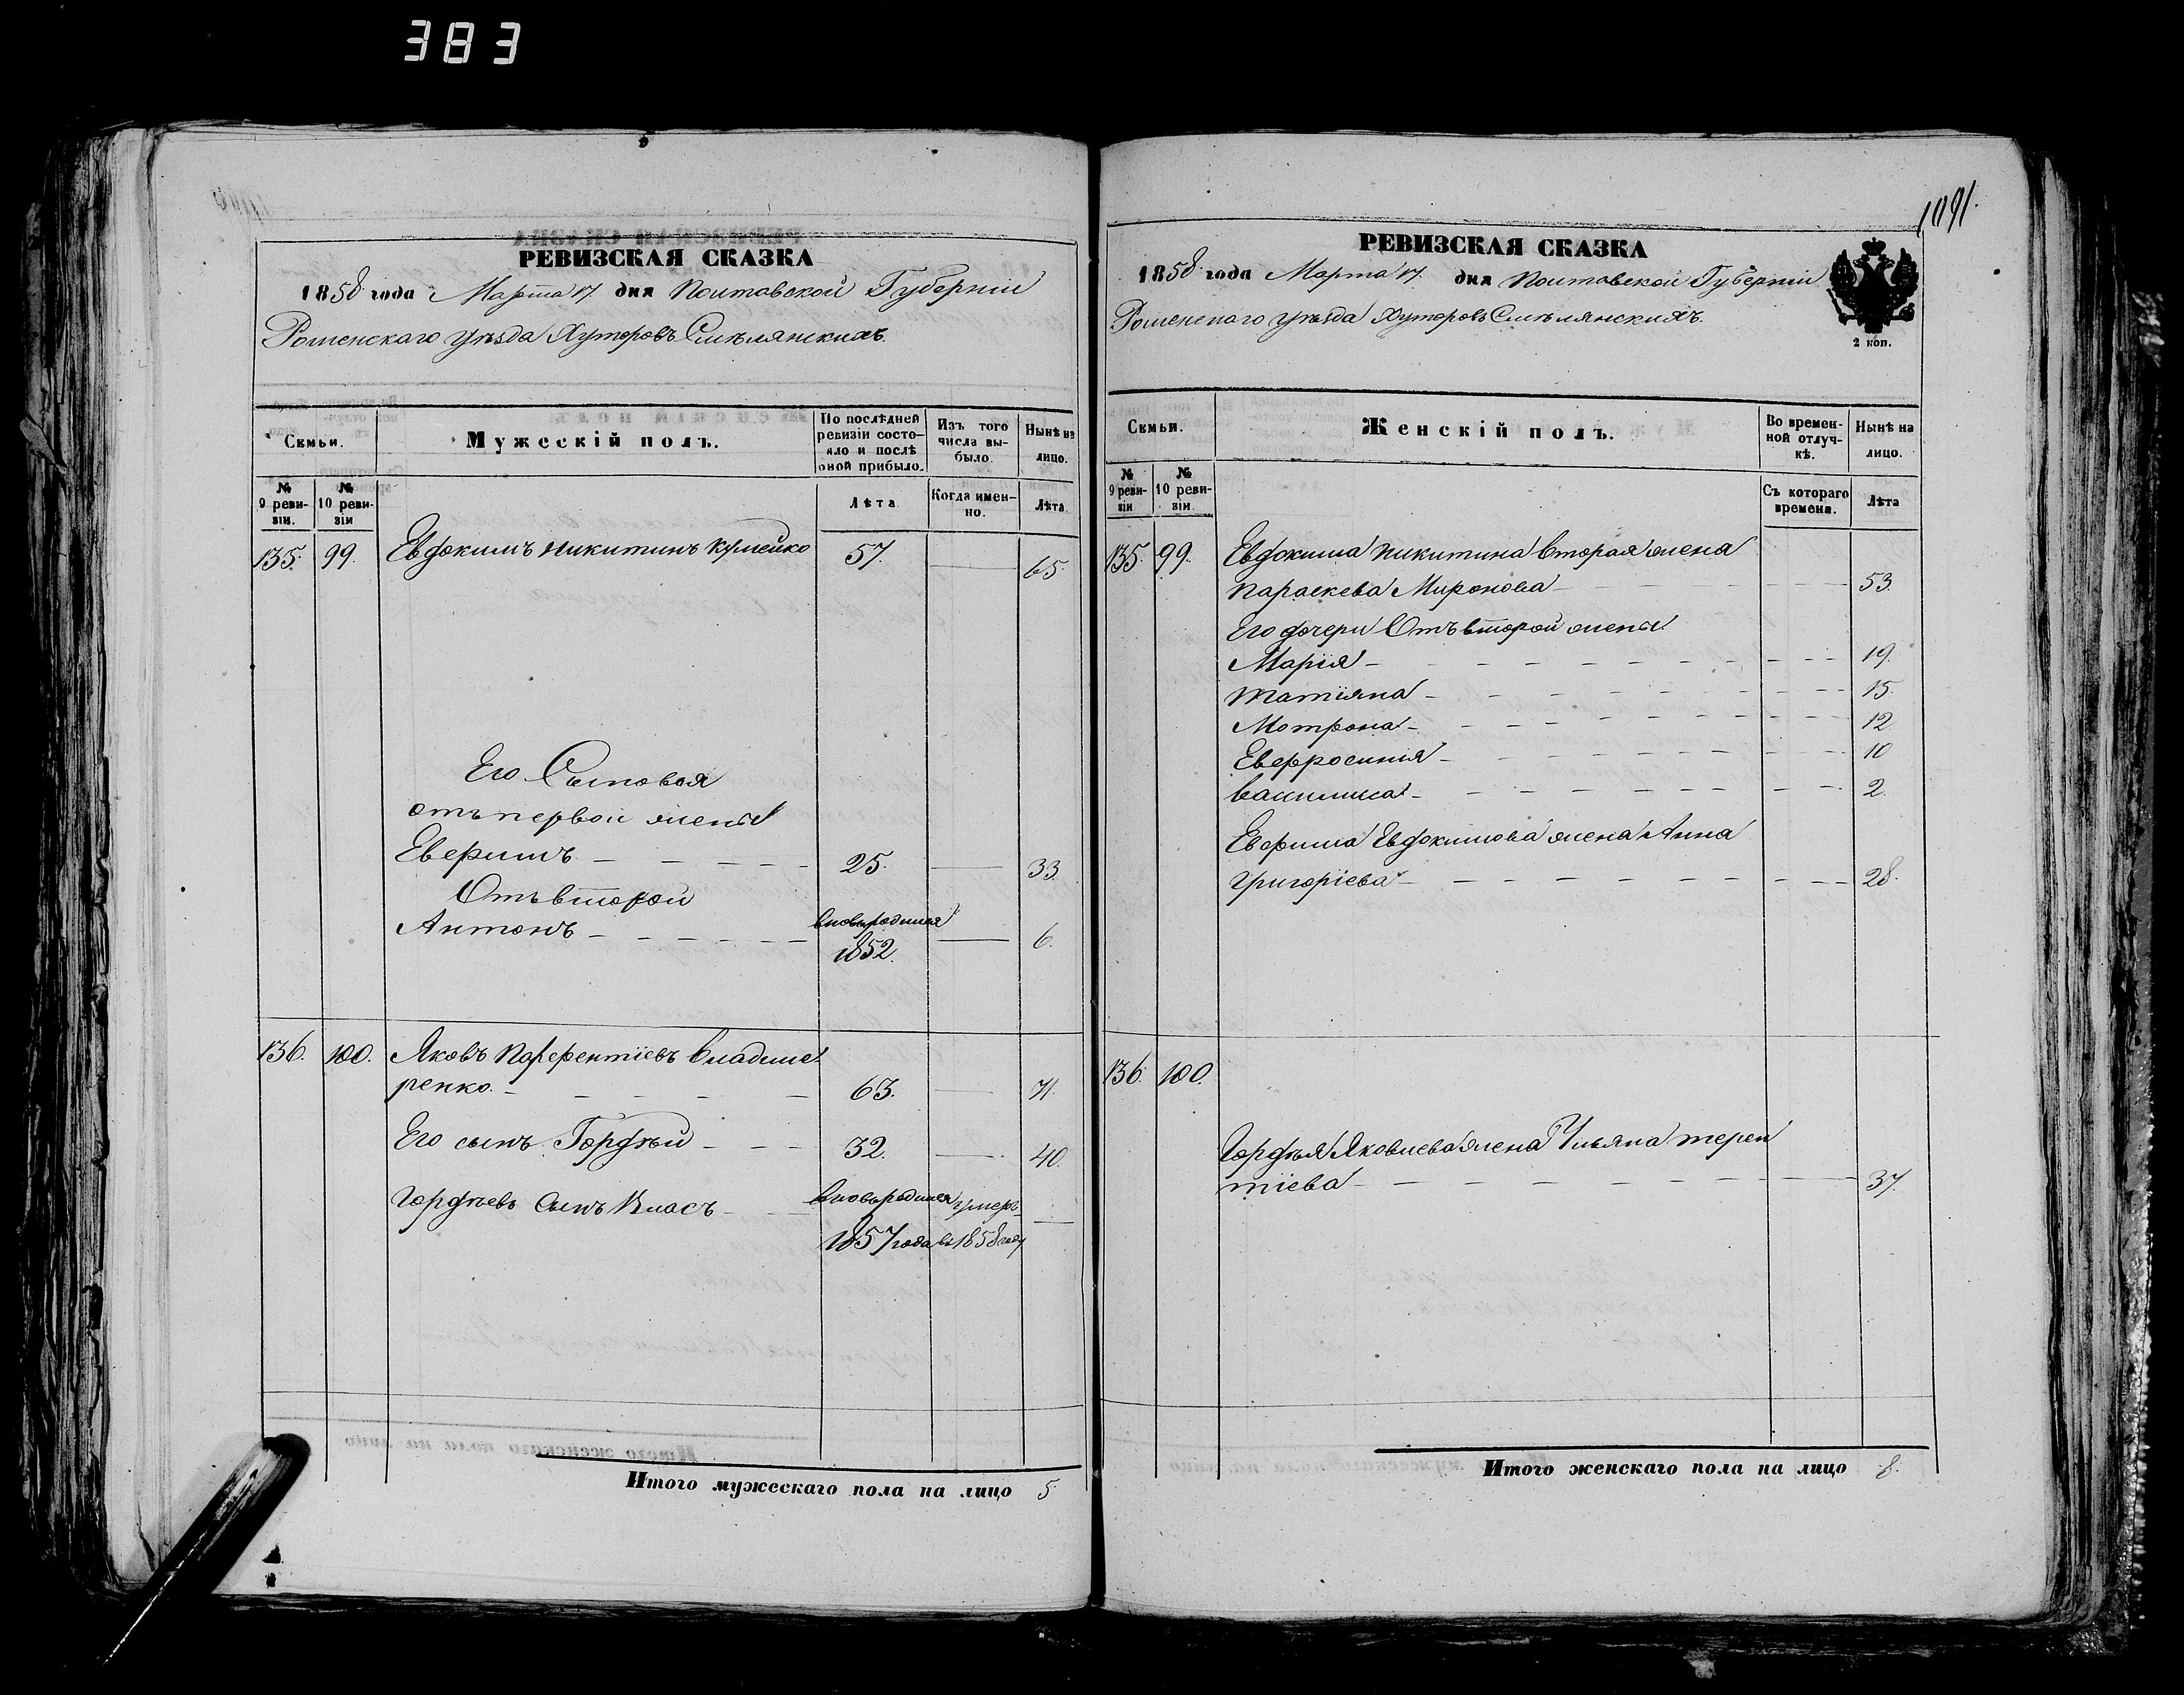 383
1091.
РЕВИЗСКАЯ СКАЗКА
1858 года Марта 17. дня Полтавской Губерніи
Роменскаго уѣзда Хуторовъ Смѣлянскихъ.
Семьи.
Мужескій полъ.
По послѣдней ревизіи состояло и послѣ оной прибыло.
Изъ того числа выбыло.
Нынѣ на лицо.
№ 9 ревизіи.
№ 10 ревизіи
Лѣта
Когда именно.
Лѣта
135. 99. Евдокимъ Никитинъ 57. 65.
Его Сыновья
отъ первой жены
Евфимъ 25. 33.
Отъ второй
Антонъ вновьродился 1852. 6.
136. 100. Яковъ Парфентіевъ Владиме
ренко. 63. 71.
Его сынъ Гордѣй 32. 40.
Гордѣевъ Сынъ Власъ вновьродился умеръ
1857 года въ 1858 году
Итого мужескаго пола на лицо 5.
РЕВИЗСКАЯ СКАЗКА
1858 года Марта 17. дня Полтавской Губерніи
Роменскаго уѣзда Хуторовъ Смѣлянскихъ.
2 коп.
Семьи.
Женскій полъ.
Во временной отлучкѣ.
Нынѣ на лицо.
№ 9 ревизіи
№ 10 ревизіи
Съ котораго времени.
Лѣта
135. 99. Евдокима Никитина вторая жена
Параскева Миронова 53.
Его дочери Отъ второй жены
Марія 19.
Татіяна 15.
Мотрона 12.
Евфросинія 10
Василиса 2.
Евфима Евдокимова жена Анна
Григоріева 28.
136. 100.
Гордѣя Яковлева жена Ульяна Терен
тіева 37.
Итого женскаго пола на лицо 8.